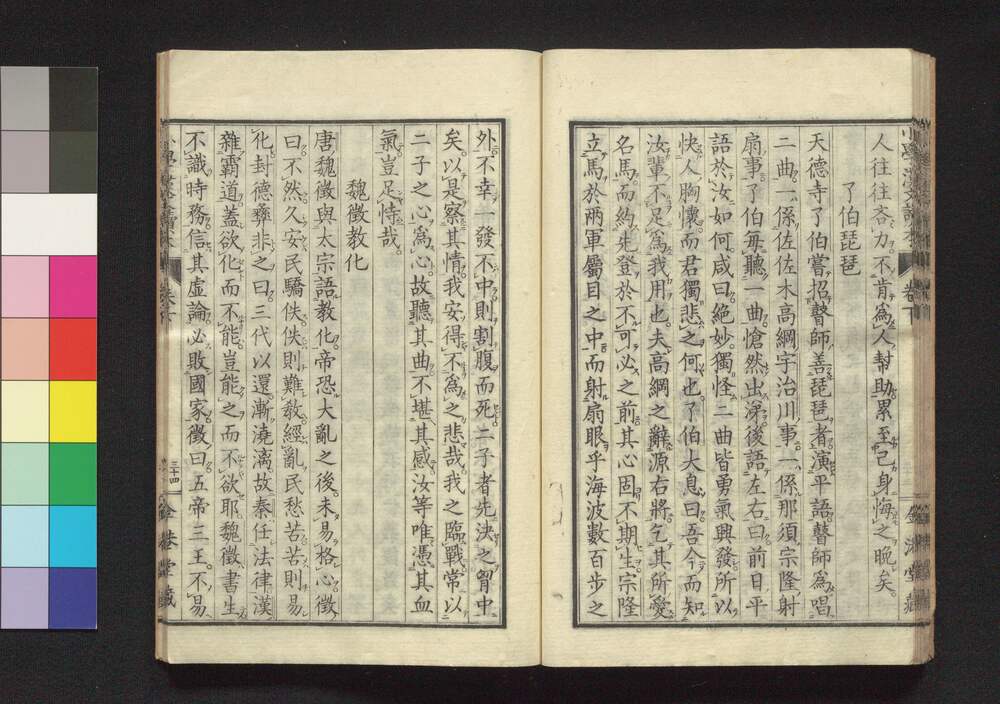 人往往吝力不肯爲人幇助累至己身悔之晩矣。
了伯琵琶
天德寺了伯嘗招瞽師善琵琶者演平語瞽師爲唱
二曲一係佐佐木高綱宇治川事一係那須宗隆射
扇事了伯毎聽一曲愴然出涕後語左右曰前日平
語於汝如何咸曰絶妙獨怪二曲皆勇氣興發所以
快人胸懷而君獨悲之何也了伯大息曰吾今而知
汝輩不足爲我用也夫高綱之辭源右將乞其所愛
名馬而約先登於不可必之前其心固不期生宗隆
立馬於兩軍屬目之中而射扇眼乎海波數百步之
外不幸一發不中則割腹而死二子者先決之胷中
矣以是察其情我安得不爲之悲哉我之臨戰常以
二子之心爲心故聽其曲不堪其感汝等唯憑其血
氣豈足恃哉。
魏徵教化
唐魏徵與太宗語教化帝恐大亂之後未易格心徵
曰不然久安民驕佚佚則難教經亂民愁苦苦則易
化封德彝非之曰三代以還漸澆漓故秦任法律漢
雜霸道蓋欲化而不能豈能之而不欲耶魏徵書生
不識時務信其虚論必敗國家徵曰五帝三王不易
卷下
三十四